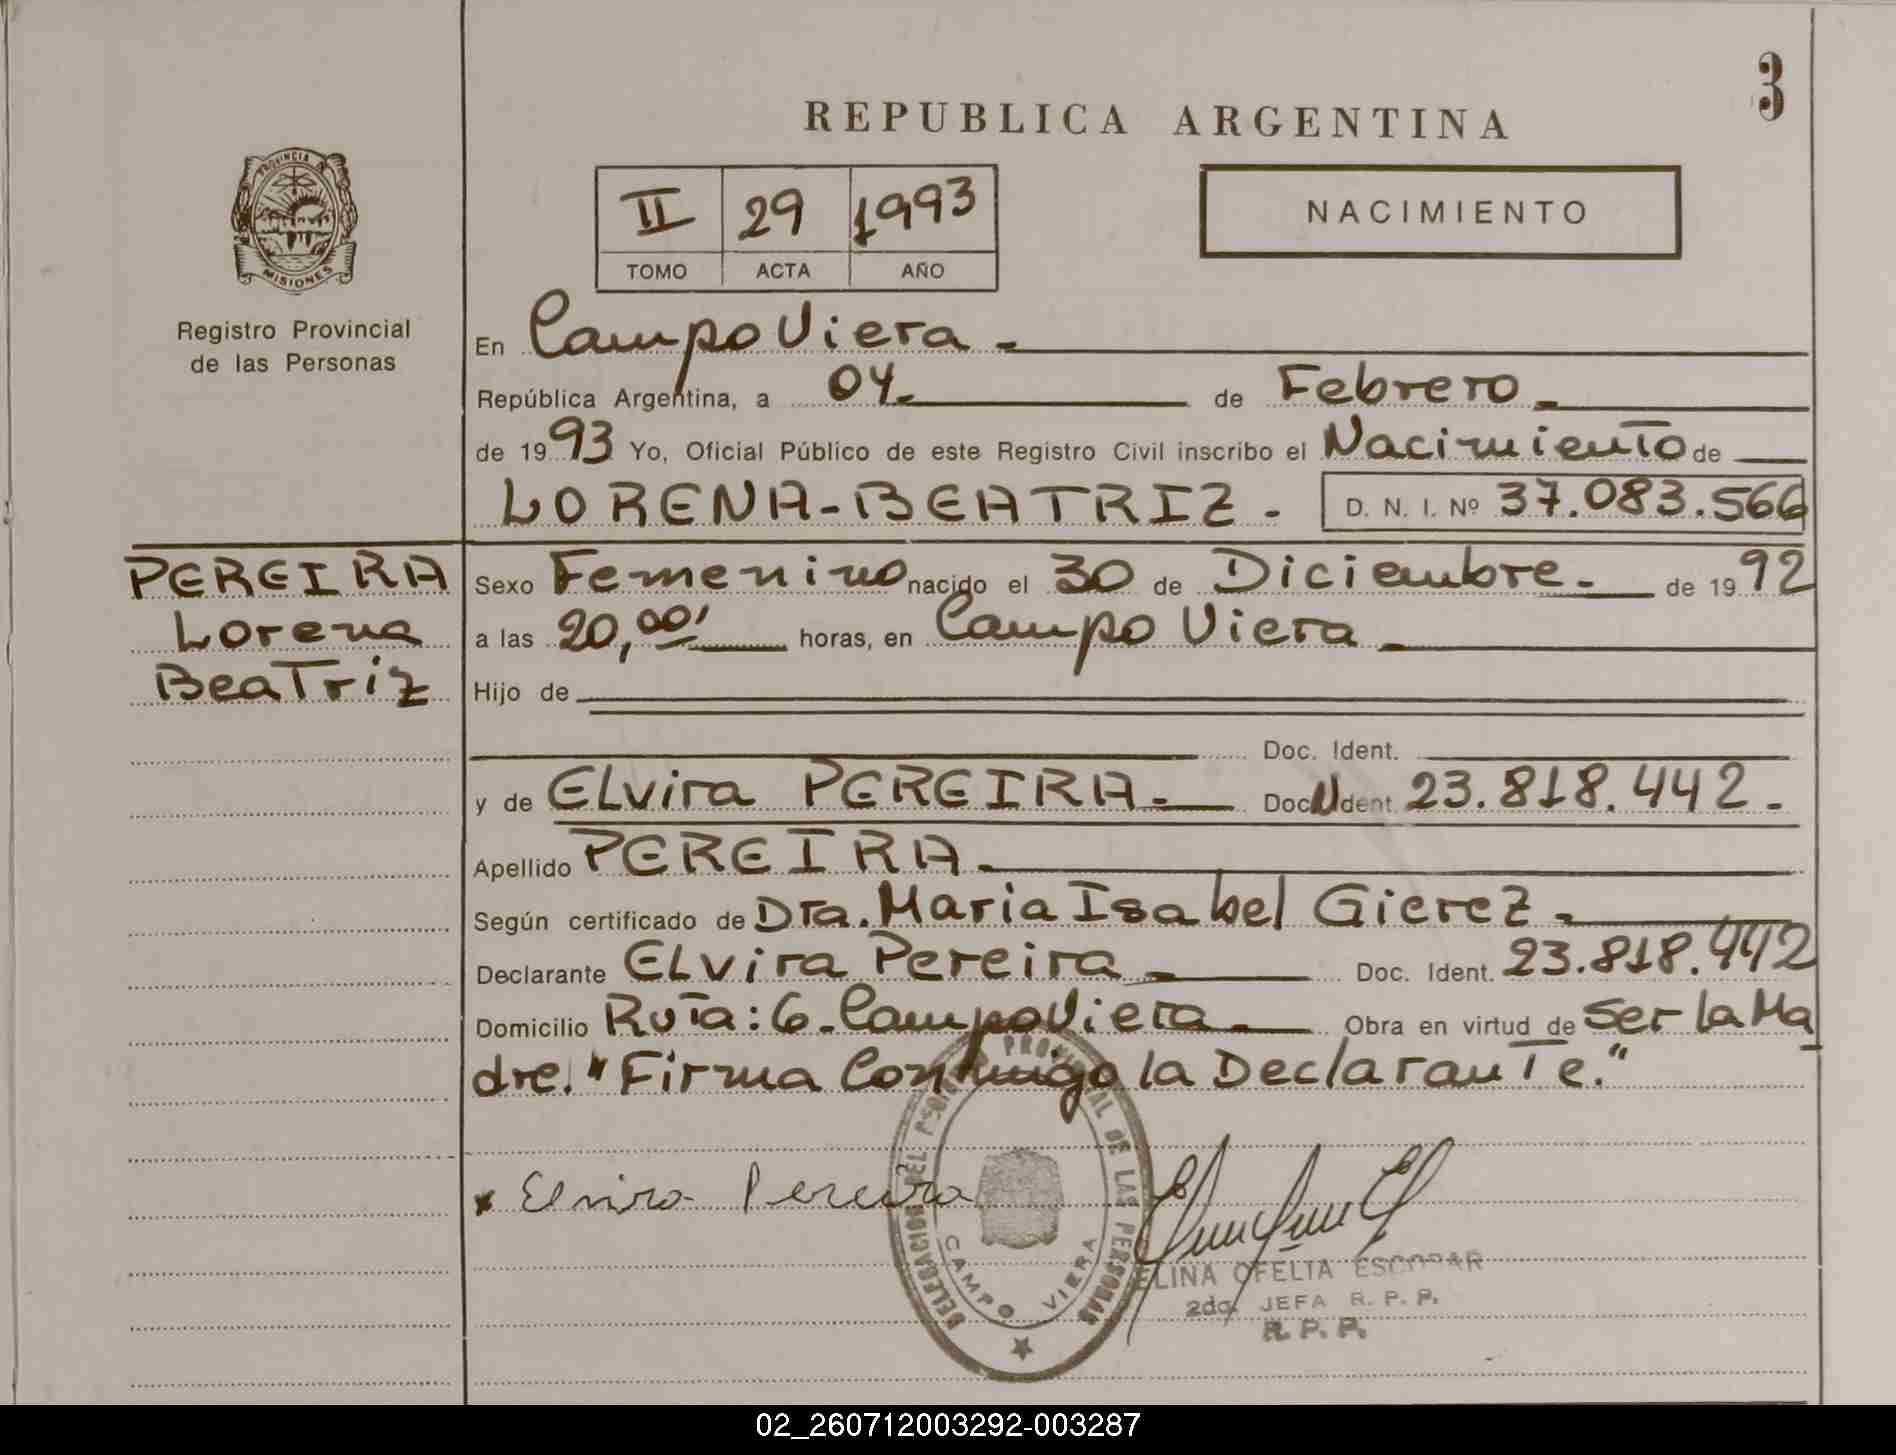 3
REPUBLICA ARGENTINA
PROVINCIA DE
MISIONES
Registro Provincial
de las Personas
II 29 1993
TOMO ACTA AÑO
NACIMIENTO
En Campo Viera -
República Argentina, a 04. de Febrero -
de 1993 Yo, Oficial Público de este Registro Civil inscribo el Nacimiento de
LORENA-BEATRIZ - D. N. I. Nº 37.083.566
PEREIRA
Lorena
BeaTriz
Sexo Femenino nacido el 30 de Diciembre - de 1992
a las 20,00' horas, en Campo Viera -
Hijo de
Doc. Ident.
y de ELvira PEREIRA - Doc. Ident. 23.818.442 -
Apellido PEREIRA -
Según certificado de Dra. Maria Isabel Gierez -
Declarante ELvira Pereira - Doc. Ident. 23.818.442
Domicilio Ruta: 6 - Campo Viera - Obra en virtud de Ser la Ma
dre. "Firma Conmigo la Declarante."
x Elvira Pereira
PROVINCIAL DE LAS PERSONAS
CAMPO VIERA
ELINA OFELIA ESCOBAR
2da. JEFA R. P. P.
R. P. P.
02_260712003292-003287